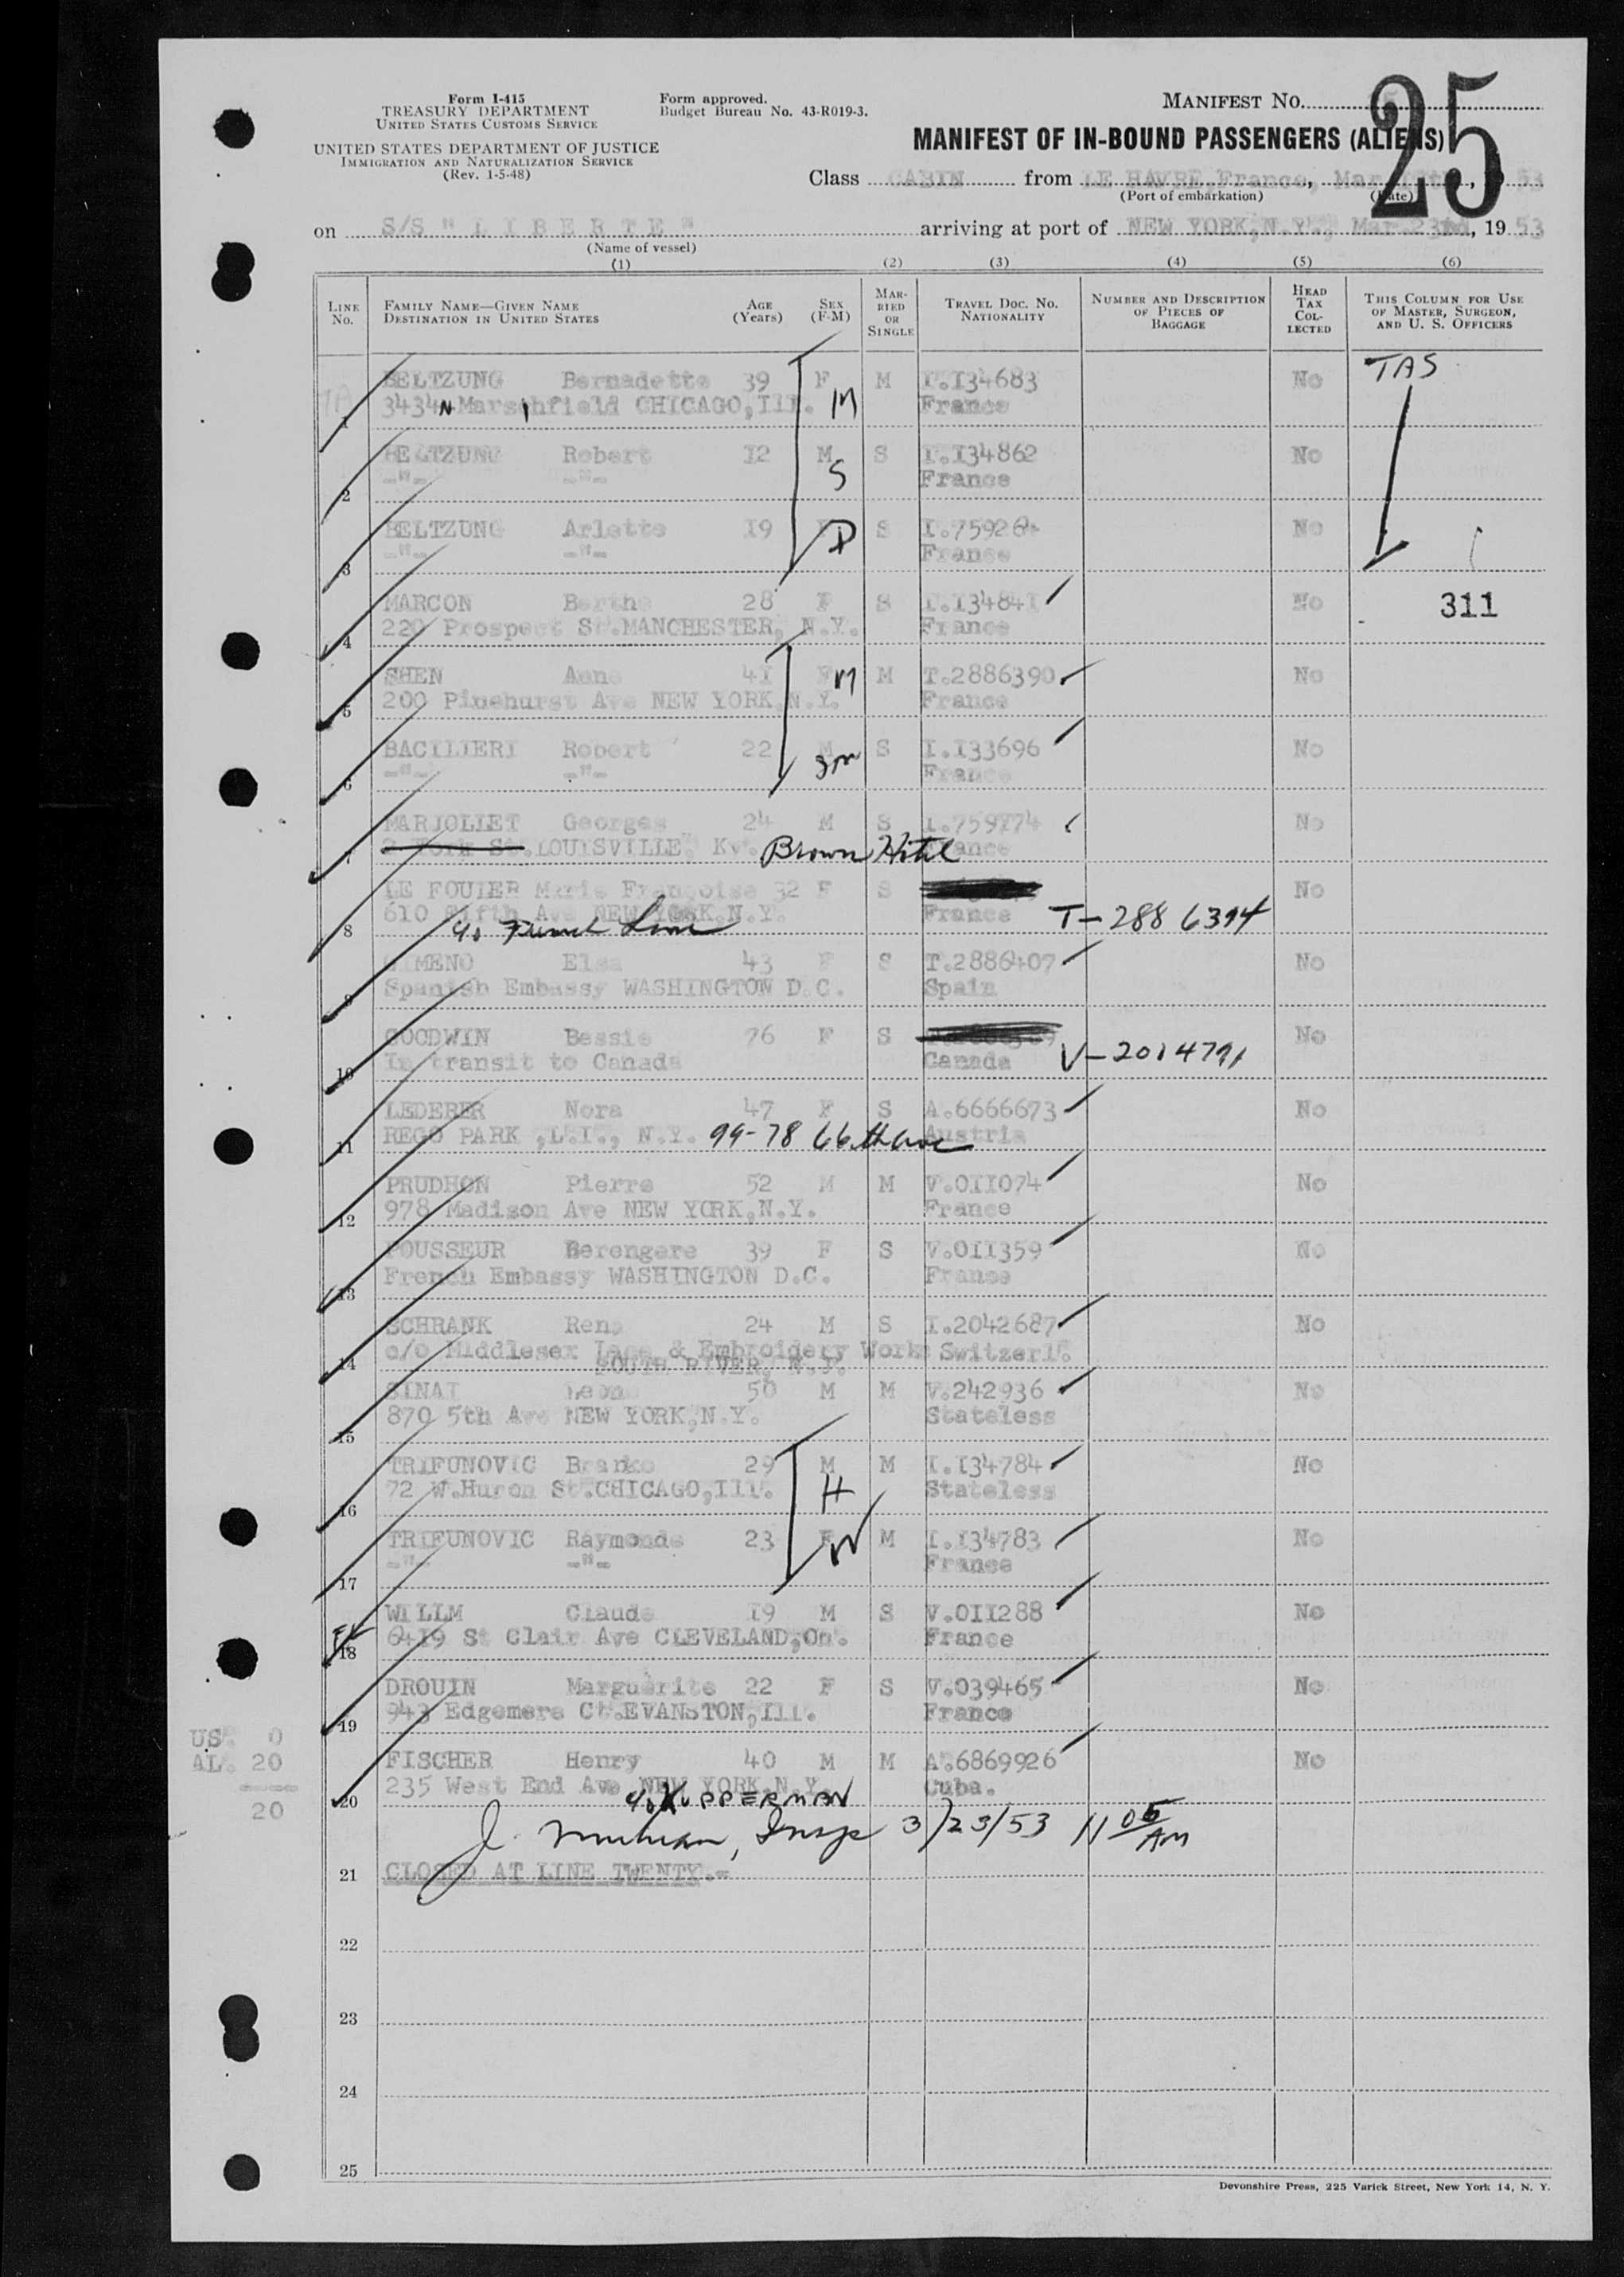 Form I-415
TREASURY DEPARTMENT
UNITED STATES CUSTOMS SERVICE
UNITED STATES DEPARTMENT OF JUSTICE
IMMIGRATION AND NATURALIZATION SERVICE
(Rev. 1-5-48)
Form approved.
Budget Bureau No. 43-R019-3.
MANIFEST No. 25
MANIFEST OF IN-BOUND PASSENGERS (ALIENS)
Class CABIN from LE HAVRE, France, Mar , 53
(Port of embarkation) (Date)
on S/S " L I B E R T E " arriving at port of NEW YORK, N.Y., Mar. 23rd, 19 53
(Name of vessel)
(1) (2) (3) (4) (5) (6)
LINE No. FAMILY NAME—GIVEN NAME DESTINATION IN UNITED STATES AGE (Years) SEX (F-M) MARRIED OR SINGLE TRAVEL DOC. NO. NATIONALITY NUMBER AND DESCRIPTION OF PIECES OF BAGGAGE HEAD TAX COLLECTED THIS COLUMN FOR USE OF MASTER, SURGEON, AND U. S. OFFICERS
BELTZUNG Bernadette 39 F M I.I34683 No TAS
1 3434 N Marshfield CHICAGO, Ill. M France
BELTZUNG Robert I2 M S I.I34862 No
2 -"- -"- S France
BELTZUNG Arlette I9 D S I.75926 No
3 -"- -"- France
MARCON Berthe 28 F S I.I3484I No 311
4 220 Prospect St.MANCHESTER, N.Y. France
SHEN Anne 4I F M M T.2886390 No
5 200 Pinehurst Ave NEW YORK, N.Y. France
BACILIERI Robert 22 M S I.I33696 No
6 -"- -"- France
MARJOLLET Georges 24 M S I.759774 No
7 York St. LOUISVILLE, Ky. Brown Hotel France
LE FOUIER Marie Françoise 32 F S No
8 610 Fifth Ave NEW YORK, N.Y. France T-288 6394
c/o French Line
GIMENO Elsa 43 F S T.2886407 No
9 Spanish Embassy WASHINGTON D.C. Spain
GOODWIN Bessie 76 F S No
10 In transit to Canada Canada V-2014791
LEDERER Nora 47 F S A.6666673 No
11 REGO PARK ,L.I., N.Y. 99-78 66th Ave Austria
PRUDHON Pierre 52 M M V.OII074 No
12 978 Madison Ave NEW YORK, N.Y. France
POUSSEUR Berengere 39 F S V.OII359 No
13 French Embassy WASHINGTON D.C. France
SCHRANK Rene 24 M S I.2042687 No
14 c/o Middlesex Lace & Embroidery Works Switzerl.
SOUTH RIVER, N.J.
SINAI Leon 50 M M V.242936 No
15 870 5th Ave NEW YORK, N.Y. Stateless
TRIFUNOVIC Branko 29 M M I.I34784 No
16 72 W.Huron St.CHICAGO, Ill. H Stateless
TRIFUNOVIC Raymonde 23 F M I.I34783 No
17 -"- -"- W France
WILLM Claude I9 M S V.OII288 No
18 6419 St Clair Ave CLEVELAND, Oh. France
DROUIN Marguerite 22 F S V.039465 No
19 943 Edgemere Ct.EVANSTON, Ill. France
US. 0
AL. 20
20
FISCHER Henry 40 M M A.6869926 No
20 235 West End Ave NEW YORK, N.Y. Cuba.
c/o KUPPERMAN
J. Insp 3/23/53 11 05 AM
21 CLOSED AT LINE TWENTY.=
22
23
24
25
Devonshire Press, 225 Varick Street, New York 14, N. Y.